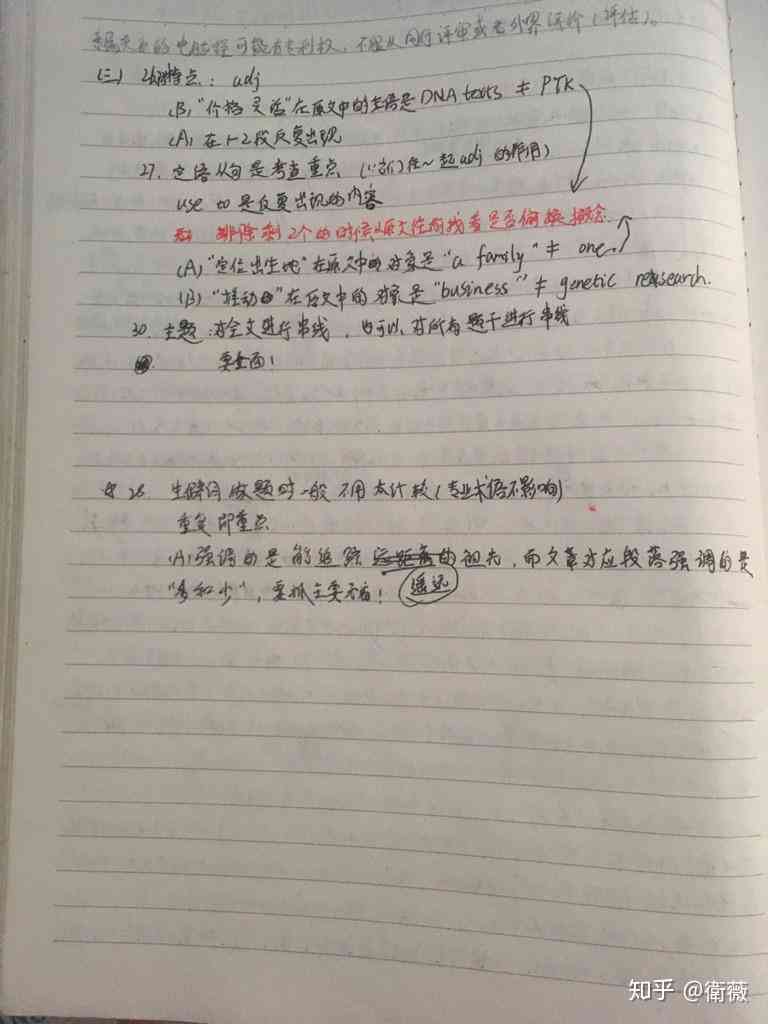 的电脑程可能有专利权，不服从同行评审或者外界评价（评估）。
(三) 26.特点：adj
(B)"价格灵活"在原文中的主语是DNA tests ≠ PTK
(A)在1-2段反复出现
27. 定语从句是考查重点（从句往往~起adj的作用）
use to是反复出现的内容
排除剩2个的时候从原文找看是否偷换概念
(A)"定位出生地"在原文中的对象是"a family" ≠ one
(B)"推动"在原文中的对象是"business" ≠ genetic research.
30. 主题：对全文进行串线，也可以对所有题干进行串线
要全面！
28. 生僻词做题时一般不用太计较（专业术语不影响）
重复即重点
(A)强调的是能追踪远距离的祖先，而文章对应段落强调的是
"多和少"，要抓主要矛盾！ 遥远
知乎 @衛薇